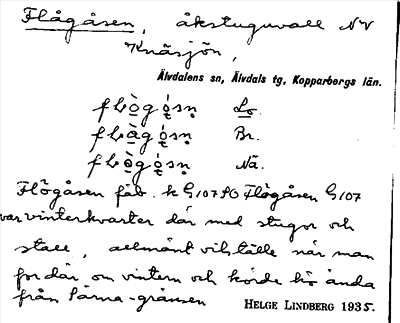 Flågåsen, åkstuguvall NV
Knäsjön,
Älvdalens sn, Älvdals tg, Kopparbergs län.
flògǫ́sṇ Lo.
flàgǫ́sṇ Br.
flògǫ́sṇ Nä.
Flögåsen fäb. k G107 SO Flögåsen G107
var vinterkvarter där med stugor och
stall, allmänt viloställe när man
for där om vintern och körde hö ända
från Särna-gränsen HELGE LINDBERG 1935.